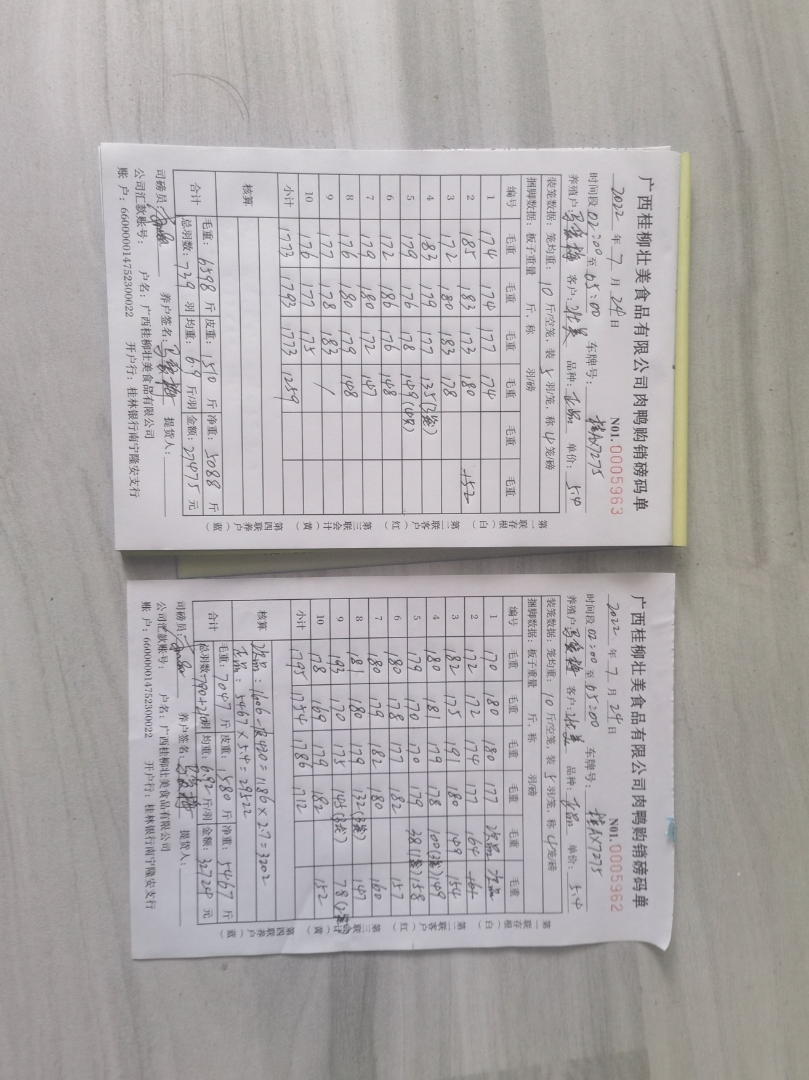 广西桂柳壮美食品有限公司肉鸭购销磅码单
2022 年 7 月 24 日 N01.0005963
时间段 02:00 至 05:00 车牌号: 桂AX7275
养殖户: 客户: 品种: 正品 单价: 5.4
装笼数据: 笼均重: 10 斤/空笼, 装 5 羽/笼, 称 4 笼/磅
捆脚数据: 板子重量 斤, 称 羽/磅
编号 毛重 毛重 毛重 毛重 毛重 毛重
1 174 174 177 174
2 185 183 173 180 +52
3 172 180 183 178
4 183 179 177 135(3笼)
5 179 176 178 149(4笼)
6 172 186 176 148
7 179 180 172 147
8 176 180 179 148
9 177 178 183 /
10 176 177 175
小计 1773 1793 1773 1259
核算
合计 毛重: 6598 斤 皮重: 1510 斤 净重: 5088 斤
总羽数: 739 羽 均重: 6.9 斤/羽 金额: 27475 元
司磅员: 养户签名: 提货人:
公司汇款账号: 户名: 广西桂柳壮美食品有限公司
账户: 660000014752300022 开户行: 桂林银行南宁隆安支行
第一联存根(白) 第二联客户(红) 第三联会计(黄) 第四联养户(蓝)
广西桂柳壮美食品有限公司肉鸭购销磅码单
2022 年 7 月 24 日 N01.0005962
时间段 02:00 至 05:00 车牌号: 桂AX7275
养殖户: 客户: 品种: 正品 单价: 5.4
装笼数据: 笼均重: 10 斤/空笼, 装 5 羽/笼, 称 4 笼/磅
捆脚数据: 板子重量 斤, 称 羽/磅
编号 毛重 毛重 毛重 毛重 毛重 毛重
1 170 180 180 177 次品
2 172 172 174 177 164 +61
3 182 175 191 180 149 154
4 180 181 179 178 100(3笼) 149
5 179 170 170 179 38(1笼) 158
6 180 178 177 182 157
7 180 179 182 180 160
8 181 180 179 132(3笼) 147
9 193 170 175 145(3笼) 78
10 178 169 179 182 152
小计 1795 1754 1786 1712
核算 次品: 1606-皮420=1186×2.7=3202
正品: 5467×5.4=29522
合计 毛重: 7047 斤 皮重: 1580 斤 净重: 5467 斤
总羽数: 790+210 羽 均重: 6.92 斤/羽 金额: 32724 元
司磅员: 养户签名: 提货人:
公司汇款账号: 户名: 广西桂柳壮美食品有限公司
账户: 660000014752300022 开户行: 桂林银行南宁隆安支行
第一联存根(白) 第二联客户(红) 第三联会计(黄) 第四联养户(蓝)